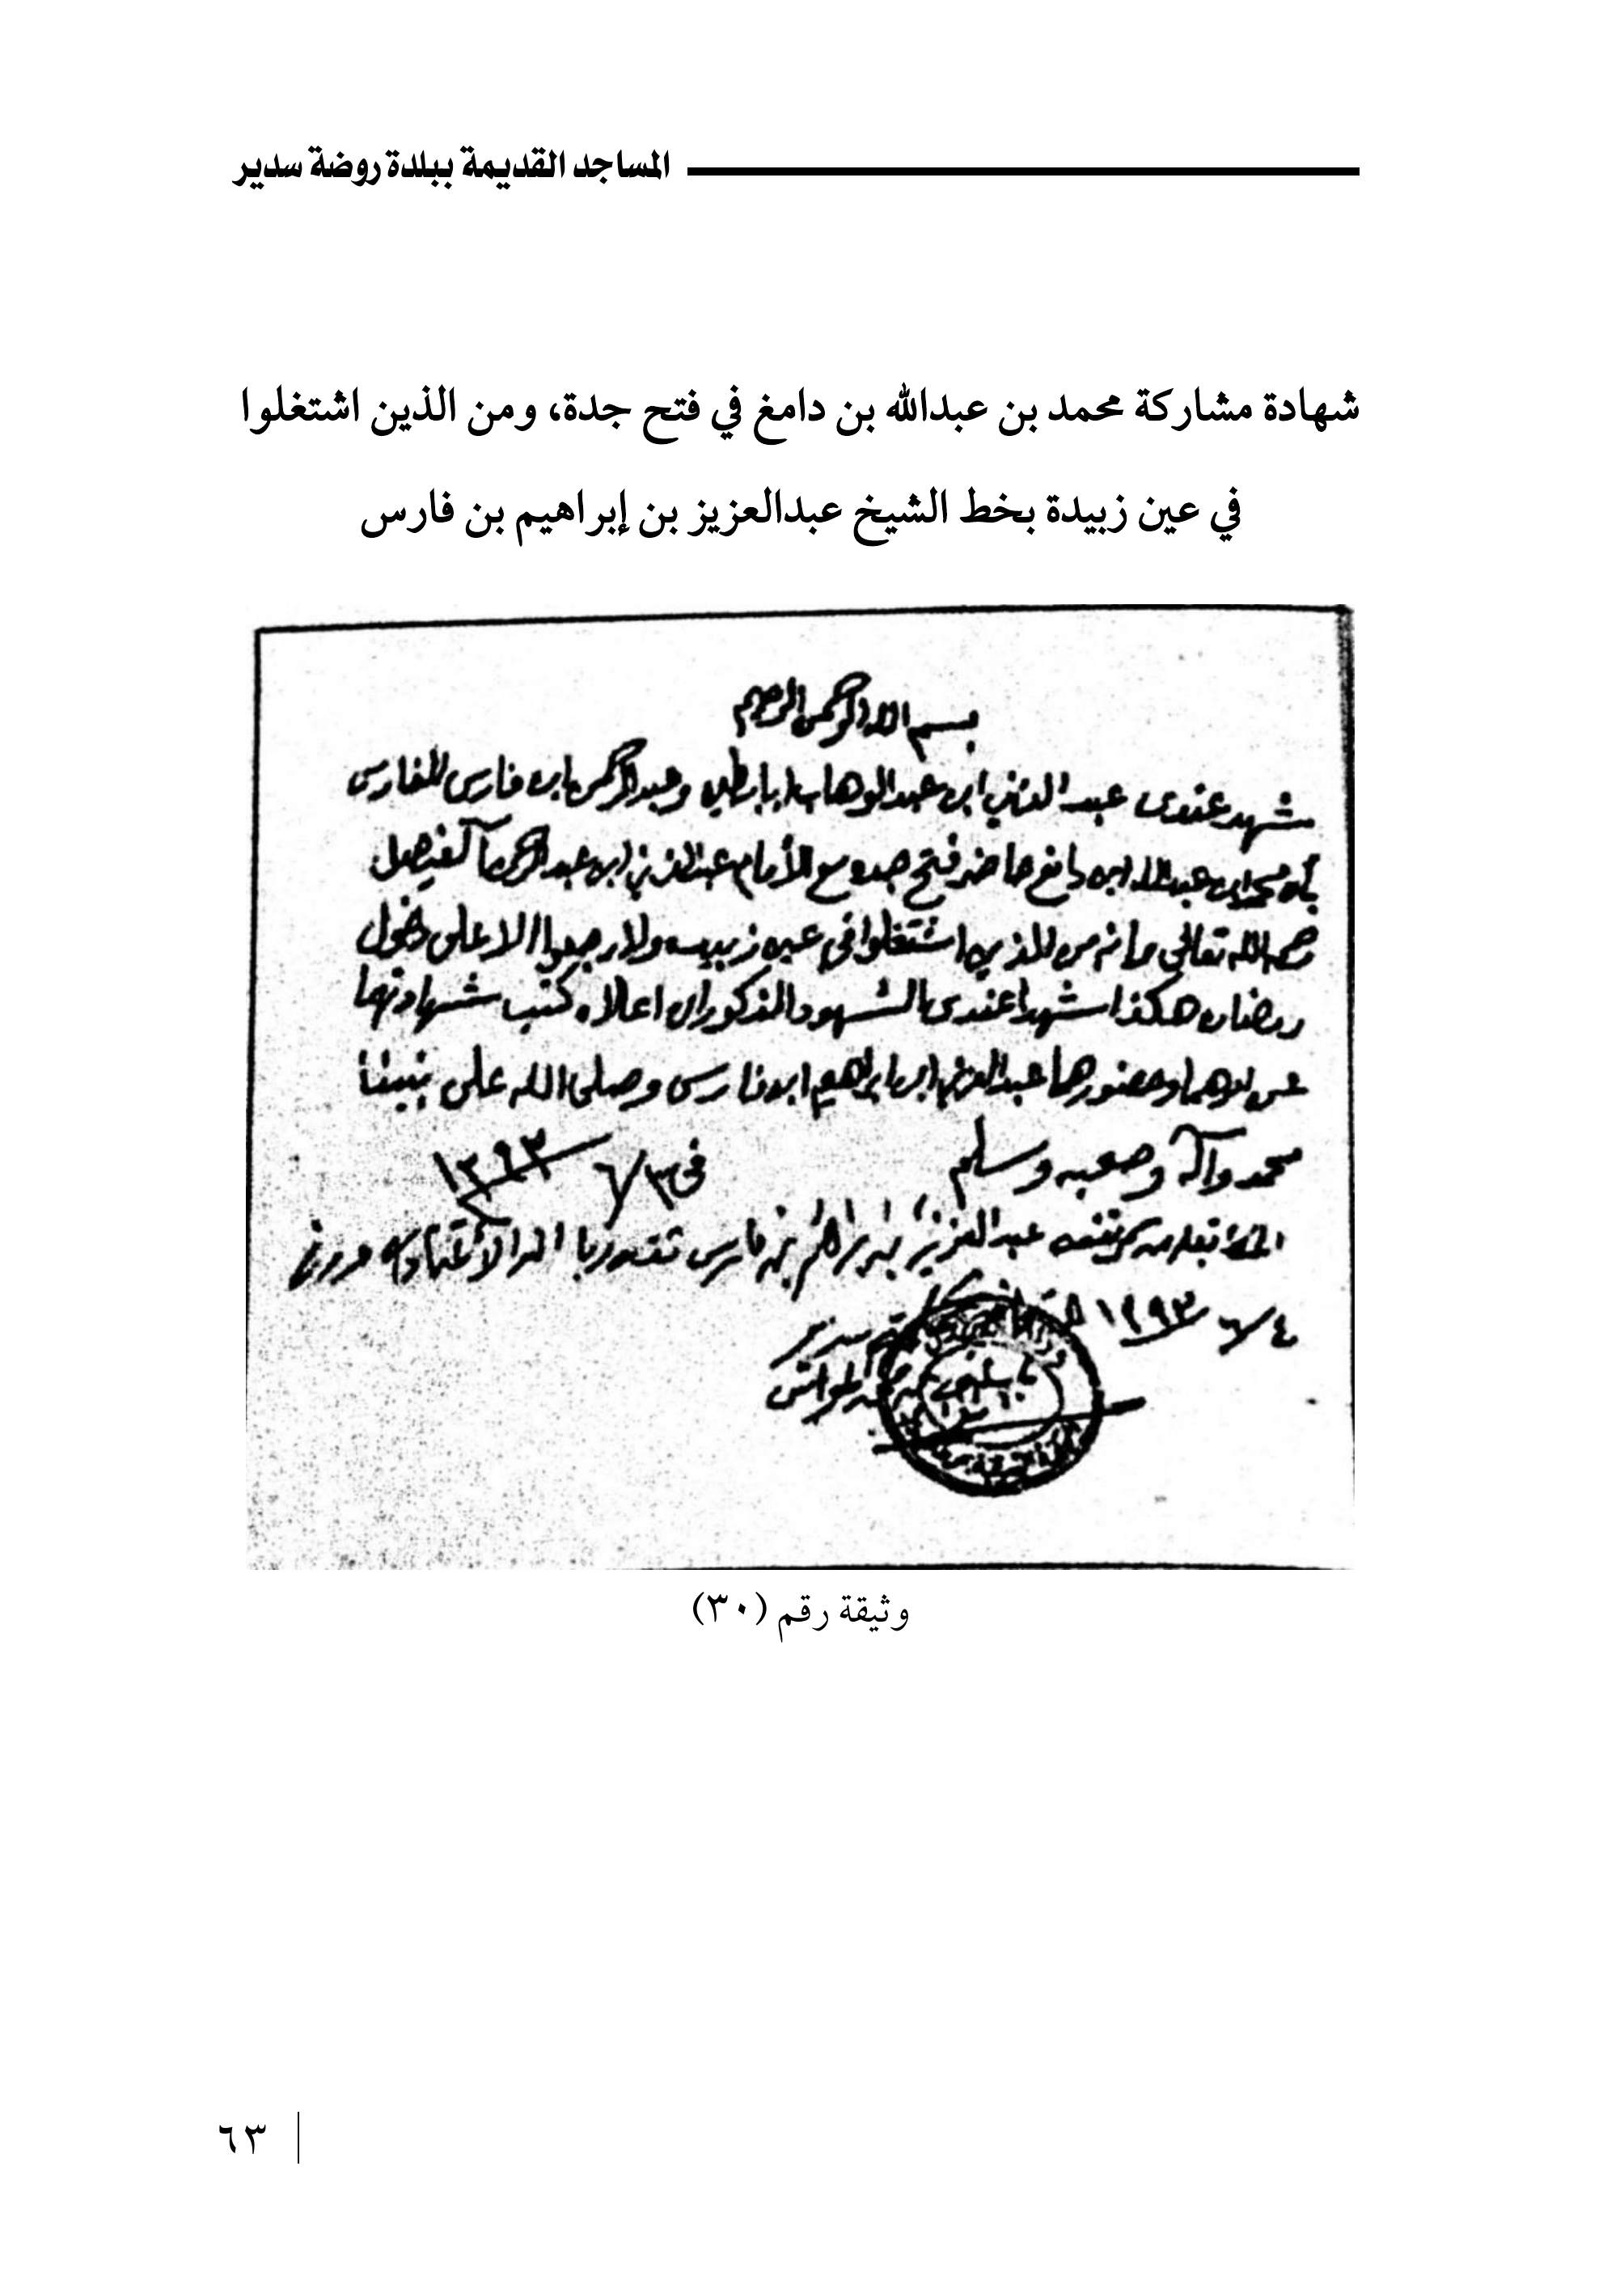 المساجد القديمة ببلدة روضة سدير
شهادة مشاركة محمد بن عبدالله بن دامغ في فتح جدة، ومن الذين اشتغلوا
في عين زبيدة بخط الشيخ عبدالعزيز بن إبراهيم بن فارس
بسم الله الرحمن الرحيم
شهد عندي عبد العزيز ابن عبد الوهاب ابابطين وعبد الرحمن ابن فارس الفارس
بأن محمد ابن عبد الله ابن دامغ حاضر فتح جده مع الأمام عبد العزيز ابن عبد الرحمن آلفيصل
رحمه الله تعالى وانه من الذين اشتغلوا في عين زبيده ولا رجعوا الا على دخول
رمضان هكذا شهدا عندي الشهود المذكوران اعلاه كتب شهادتهما
عن امرهما وحضورهما عبد العزيز ابن ابراهيم ابن فارس وصلى الله على نبينا
محمد وآله وصحبه وسلم في ٦/٣ ١٣٩٣
عبد العزيز بن ابراهيم بن فارس
٦/٤ ١٣٩٣
وثيقة رقم (٣٠)
٦٣